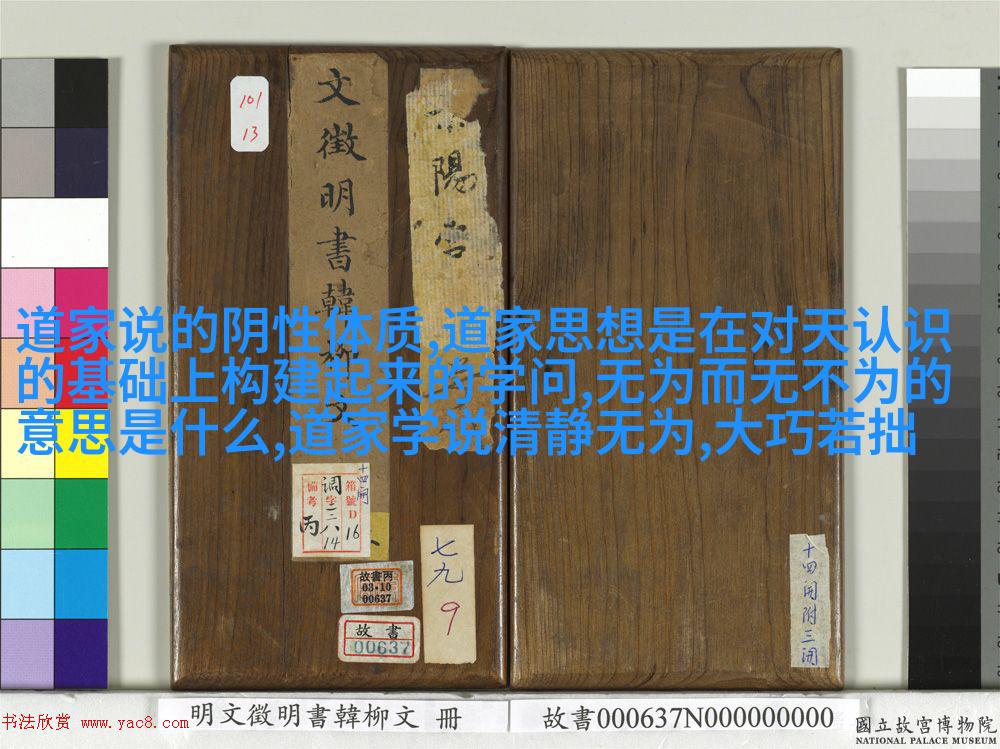 101
13
文徵明書韓柳文
陽宮
道家说的阴性体质,道家思想是在对天认识
的基础上构建起来的学问,无为而无不为的
意思是什么,道家学说清静无为,大巧若拙
十四開
箱號D16
調字三八14
備考丙
故書丙
03·10
00637
故書
00637
七九
9
十四開附三開
明文徵明書韓柳文 冊
故書000637N000000000
國立故宮博物院
NATIONAL PALACE MUSEUM
书法欣赏 www.yac8.com